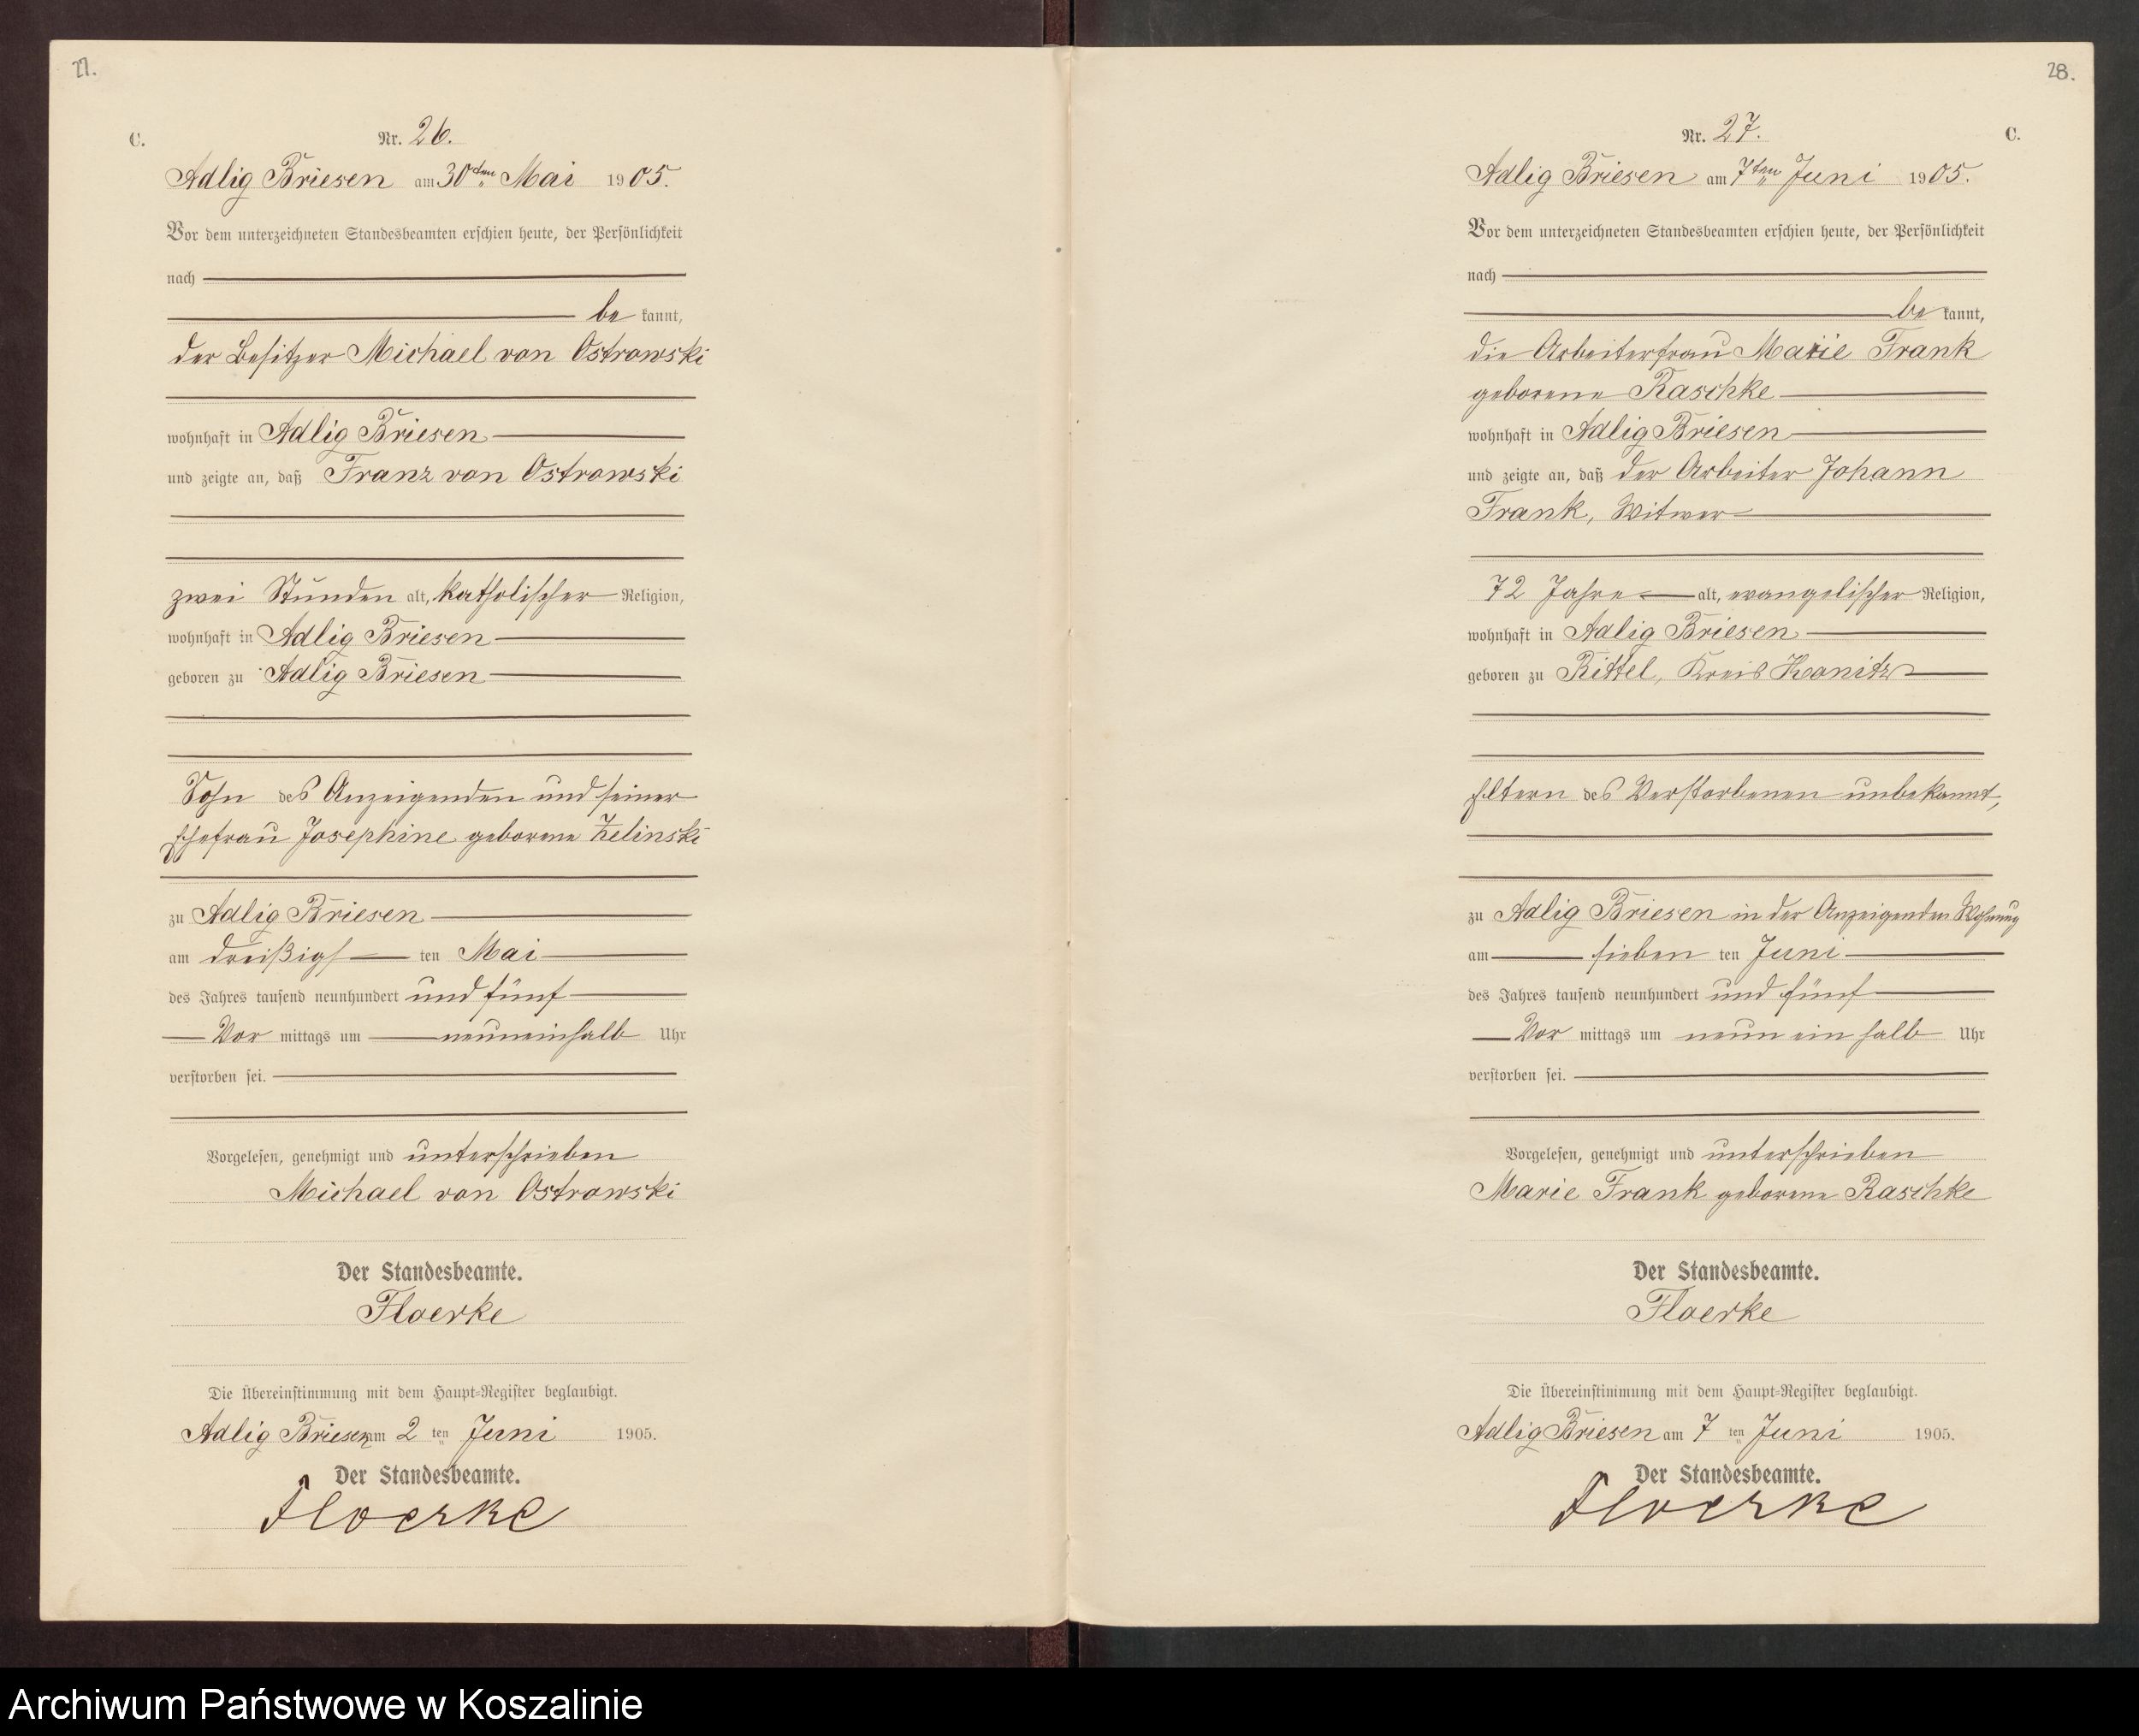 27.
C.
Nr. 26.
Adlig Briesen am 30ten Mai 1905.
Vor dem unterzeichneten Standesbeamten erschien heute, der Persönlichkeit
nach
be kannt,
der Besitzer Michael von Ostrowski
wohnhaft in Adlig Briesen
und zeigte an, daß Franz von Ostrowski
zwei Stunden alt, katholischer Religion,
wohnhaft in Adlig Briesen
geboren zu Adlig Briesen
Sohn des Anzeigenden und seiner
Ehefrau Josephine geborene Zelinski
zu Adlig Briesen
am dreißigs ten Mai
des Jahres tausend neunhundert und fünf
Vor mittags um neuneinhalb Uhr
verstorben sei.
Vorgelesen, genehmigt und unterschrieben
Michael von Ostrowski
Der Standesbeamte.
Floerke
Die Übereinstimmung mit dem Haupt-Register beglaubigt.
Adlig Briesen am 2 ten Juni 1905.
Der Standesbeamte.
Floerke
28.
Nr. 27. C.
Adlig Briesen am 7ten Juni 1905.
Vor dem unterzeichneten Standesbeamten erschien heute, der Persönlichkeit
nach
be kannt,
die Arbeiterfrau Marie Frank
geborene Raschke
wohnhaft in Adlig Briesen
und zeigte an, daß der Arbeiter Johann
Frank, Witwer
72 Jahre alt, evangelischer Religion,
wohnhaft in Adlig Briesen
geboren zu Rittel, Kreis Konitz
Eltern des Verstorbenen unbekannt,
zu Adlig Briesen in der Anzeigenden Wohnung
am sieben ten Juni
des Jahres tausend neunhundert und fünf
Vor mittags um neun ein halb Uhr
verstorben sei.
Vorgelesen, genehmigt und unterschrieben
Marie Frank geborene Raschke
Der Standesbeamte.
Floerke
Die Übereinstimmung mit dem Haupt-Register beglaubigt.
Adlig Briesen am 7 ten Juni 1905.
Der Standesbeamte.
Floerke
Archiwum Państwowe w Koszalinie